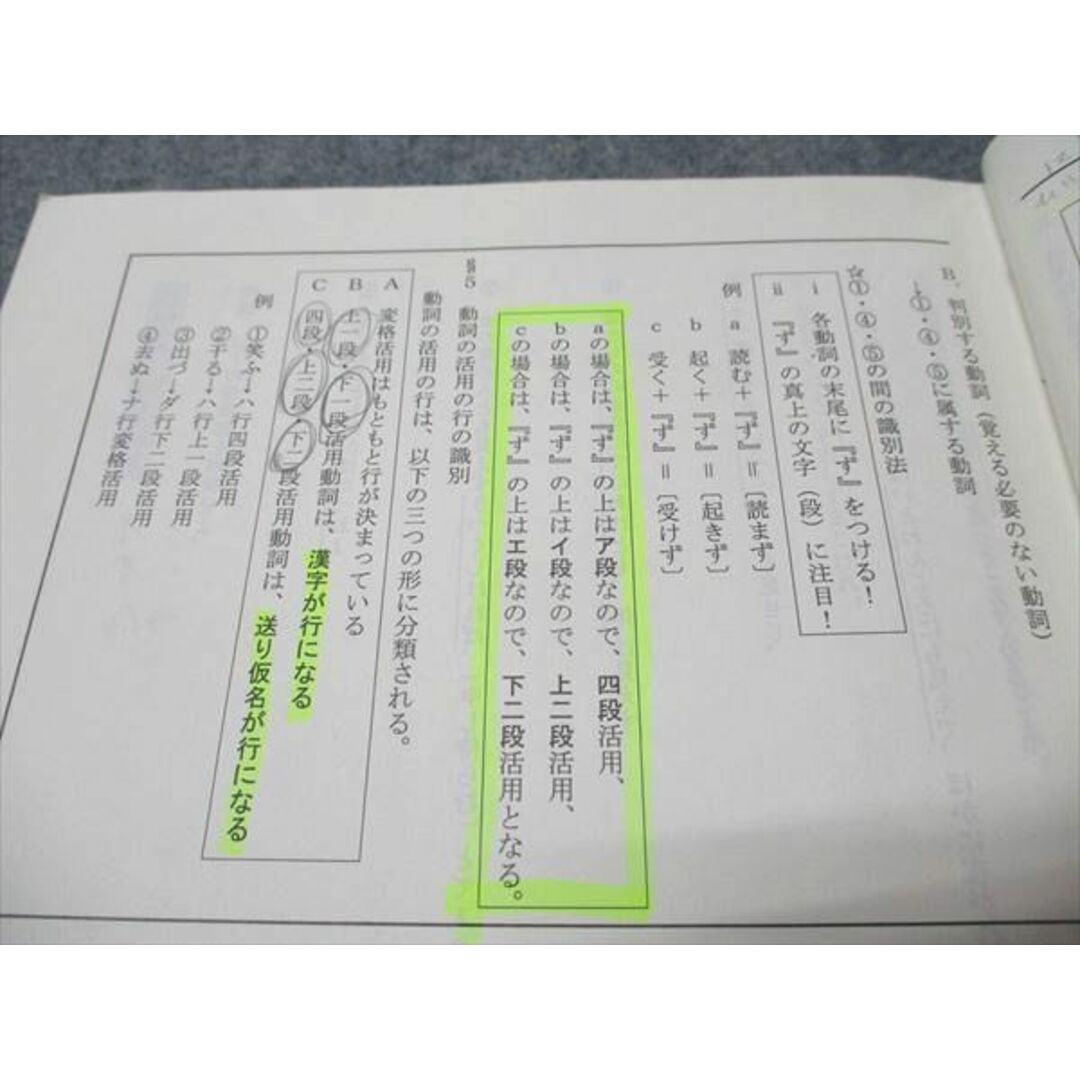 B、判別する動詞（覚える必要のない動詞）
→①・④・⑤に属する動詞
☆①・④・⑤の間の識別法
ⅰ 各動詞の末尾に『ず』をつける！
ⅱ 『ず』の真上の文字（段）に注目！
例 a 読む＋『ず』＝〔読まず〕
b 起く＋『ず』＝〔起きず〕
c 受く＋『ず』＝〔受けず〕
aの場合は、『ず』の上はア段なので、四段活用、
bの場合は、『ず』の上はイ段なので、上二段活用、
cの場合は、『ず』の上はエ段なので、下二段活用となる。
§5 動詞の活用の行の識別
動詞の活用の行は、以下の三つの形に分類される。
A 変格活用はもともと行が決まっている
B 上一段・下一段活用動詞は、漢字が行になる
C 四段・上二段・下二段活用動詞は、送り仮名が行になる
例 ①笑ふ→ハ行四段活用
②干る→ハ行上一段活用
③出づ→ダ行下二段活用
④去ぬ→ナ行変格活用